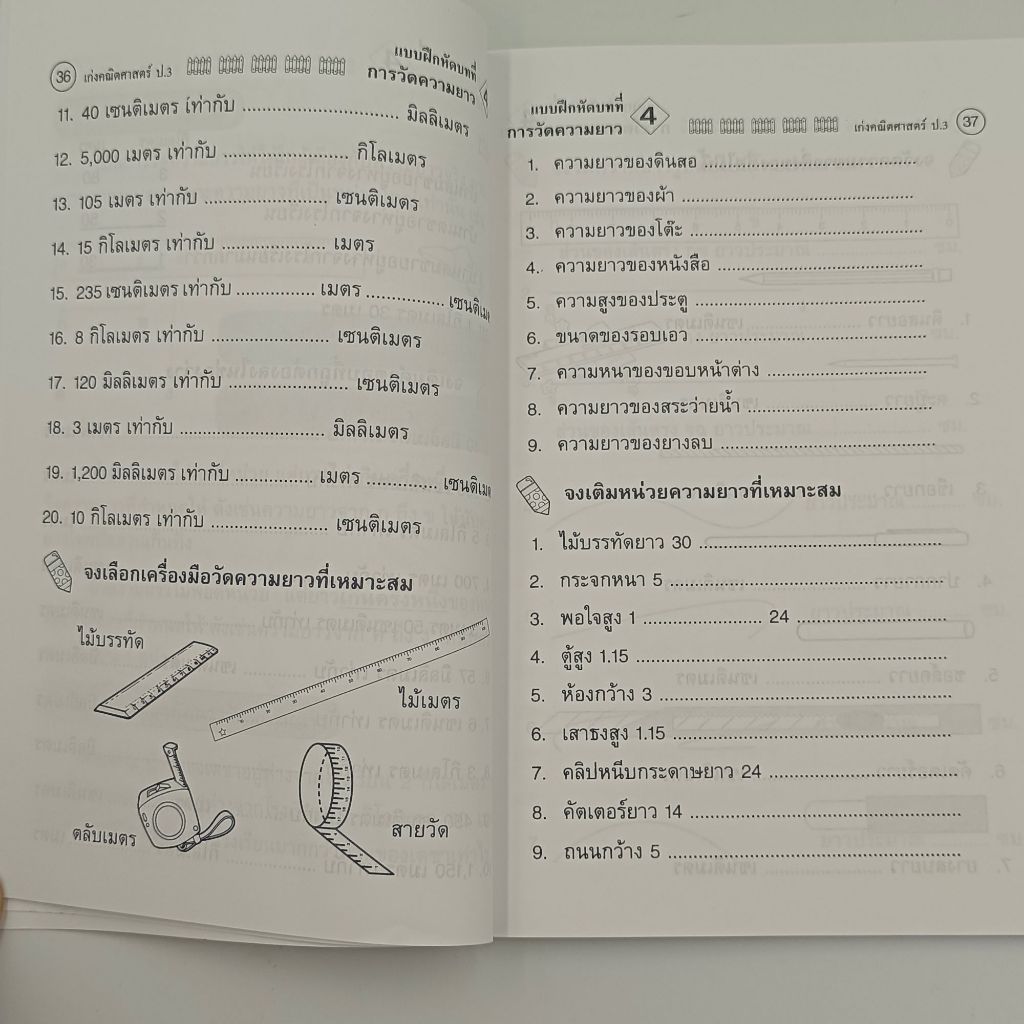 36 เก่งคณิตศาสตร์ ป.3
แบบฝึกหัดบทที่
การวัดความยาว
11. 40 เซนติเมตร เท่ากับ .............................. มิลลิเมตร
12. 5,000 เมตร เท่ากับ ........................ กิโลเมตร
13. 105 เมตร เท่ากับ ........................ เซนติเมตร
14. 15 กิโลเมตร เท่ากับ .................... เมตร
15. 235 เซนติเมตร เท่ากับ ............... เมตร ............... เซนติเมต
16. 8 กิโลเมตร เท่ากับ ....................... เซนติเมตร
17. 120 มิลลิเมตร เท่ากับ ....................... เซนติเมตร
18. 3 เมตร เท่ากับ ............................ มิลลิเมตร
19. 1,200 มิลลิเมตร เท่ากับ ............... เมตร .............. เซนติเมต
20. 10 กิโลเมตร เท่ากับ ....................... เซนติเมตร
จงเลือกเครื่องมือวัดความยาวที่เหมาะสม
ไม้บรรทัด
ไม้เมตร
ตลับเมตร
สายวัด
แบบฝึกหัดบทที่
การวัดความยาว
4
เก่งคณิตศาสตร์ ป.3 37
1. ความยาวของดินสอ ........................................
2. ความยาวของผ้า ............................................
3. ความยาวของโต๊ะ ............................................
4. ความยาวของหนังสือ ........................................
5. ความสูงของประตู ............................................
6. ขนาดของรอบเอว ............................................
7. ความหนาของขอบหน้าต่าง ...............................
8. ความยาวของสระว่ายน้ำ ...................................
9. ความยาวของยางลบ ........................................
จงเติมหน่วยความยาวที่เหมาะสม
1. ไม้บรรทัดยาว 30 ..............................................
2. กระจกหนา 5 .....................................................
3. พอใจสูง 1 ....................... 24 ..............................
4. ตู้สูง 1.15 ...........................................................
5. ห้องกว้าง 3 ........................................................
6. เสาธงสูง 1.15 .....................................................
7. คลิปหนีบกระดาษยาว 24 ...................................
8. คัตเตอร์ยาว 14 ...................................................
9. ถนนกว้าง 5 ........................................................